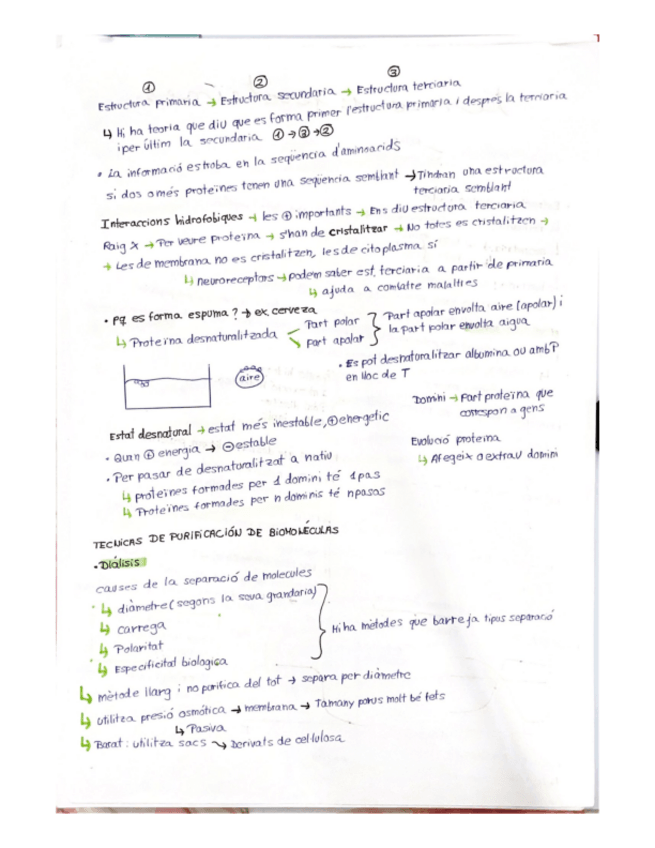 ① ② ③
Estructura primaria → Estructura secundaria → Estructura terciaria
↳ Hi ha teoria que diu que es forma primer l'estructura primaria i despres la terciaria
i per últim la secundaria ① → ③ → ②
• La informació estroba en la seqüencia d'aminoacids
si dos o més proteïnes tenen una sequencia semblant → Tindran una estructura
terciaria semblant
Interaccions hidrofobiques → les ⊕ importants → Ens diu estructura terciaria
Raig X → Per veure proteïna → s'han de cristalitzar → No totes es cristalitzen →
→ Les de membrana no es cristalitzen, les de citoplasma sí
↳ neuroreceptors → podem saber est. terciaria a partir de primaria
↳ ajuda a combatre malalties
• Pq es forma espuma? → ex. cerveza
↳ Proteïna desnaturalitzada
Part polar
part apolar
Part apolar envolta aire (apolar) i
la part polar envolta aigua
• Es pot desnaturalitzar albumina ou amb P
en lloc de T
aire
Domini → Part proteïna que
correspon a gens
Estat desnatural → estat més inestable, ⊕ energetic
• Quan ⊕ energia → ⊖ estable
Evolució proteina
↳ Afegeix o extrau domini
• Per passar de desnaturalitzat a natiu
↳ proteïnes formades per 1 domini té 1 pas
↳ Proteïnes formades per n dominis té n pasos
TECNICAS DE PURIFICACIÓN DE BIOMOLÉCULAS
• Diàlisis
causes de la separació de molecules
↳ diàmetre (segons la seva grandaria)
↳ carrega
↳ Polaritat
↳ Especificitat biologica
Hi ha mètodes que barreja tipus separació
↳ mètode llarg i no purifica del tot → separa per diàmetre
↳ utilitza presió osmótica → membrana → Tamany porus molt bé fets
↳ Pasiva
↳ Barat: utilitza sacs → Derivats de cel·lulosa